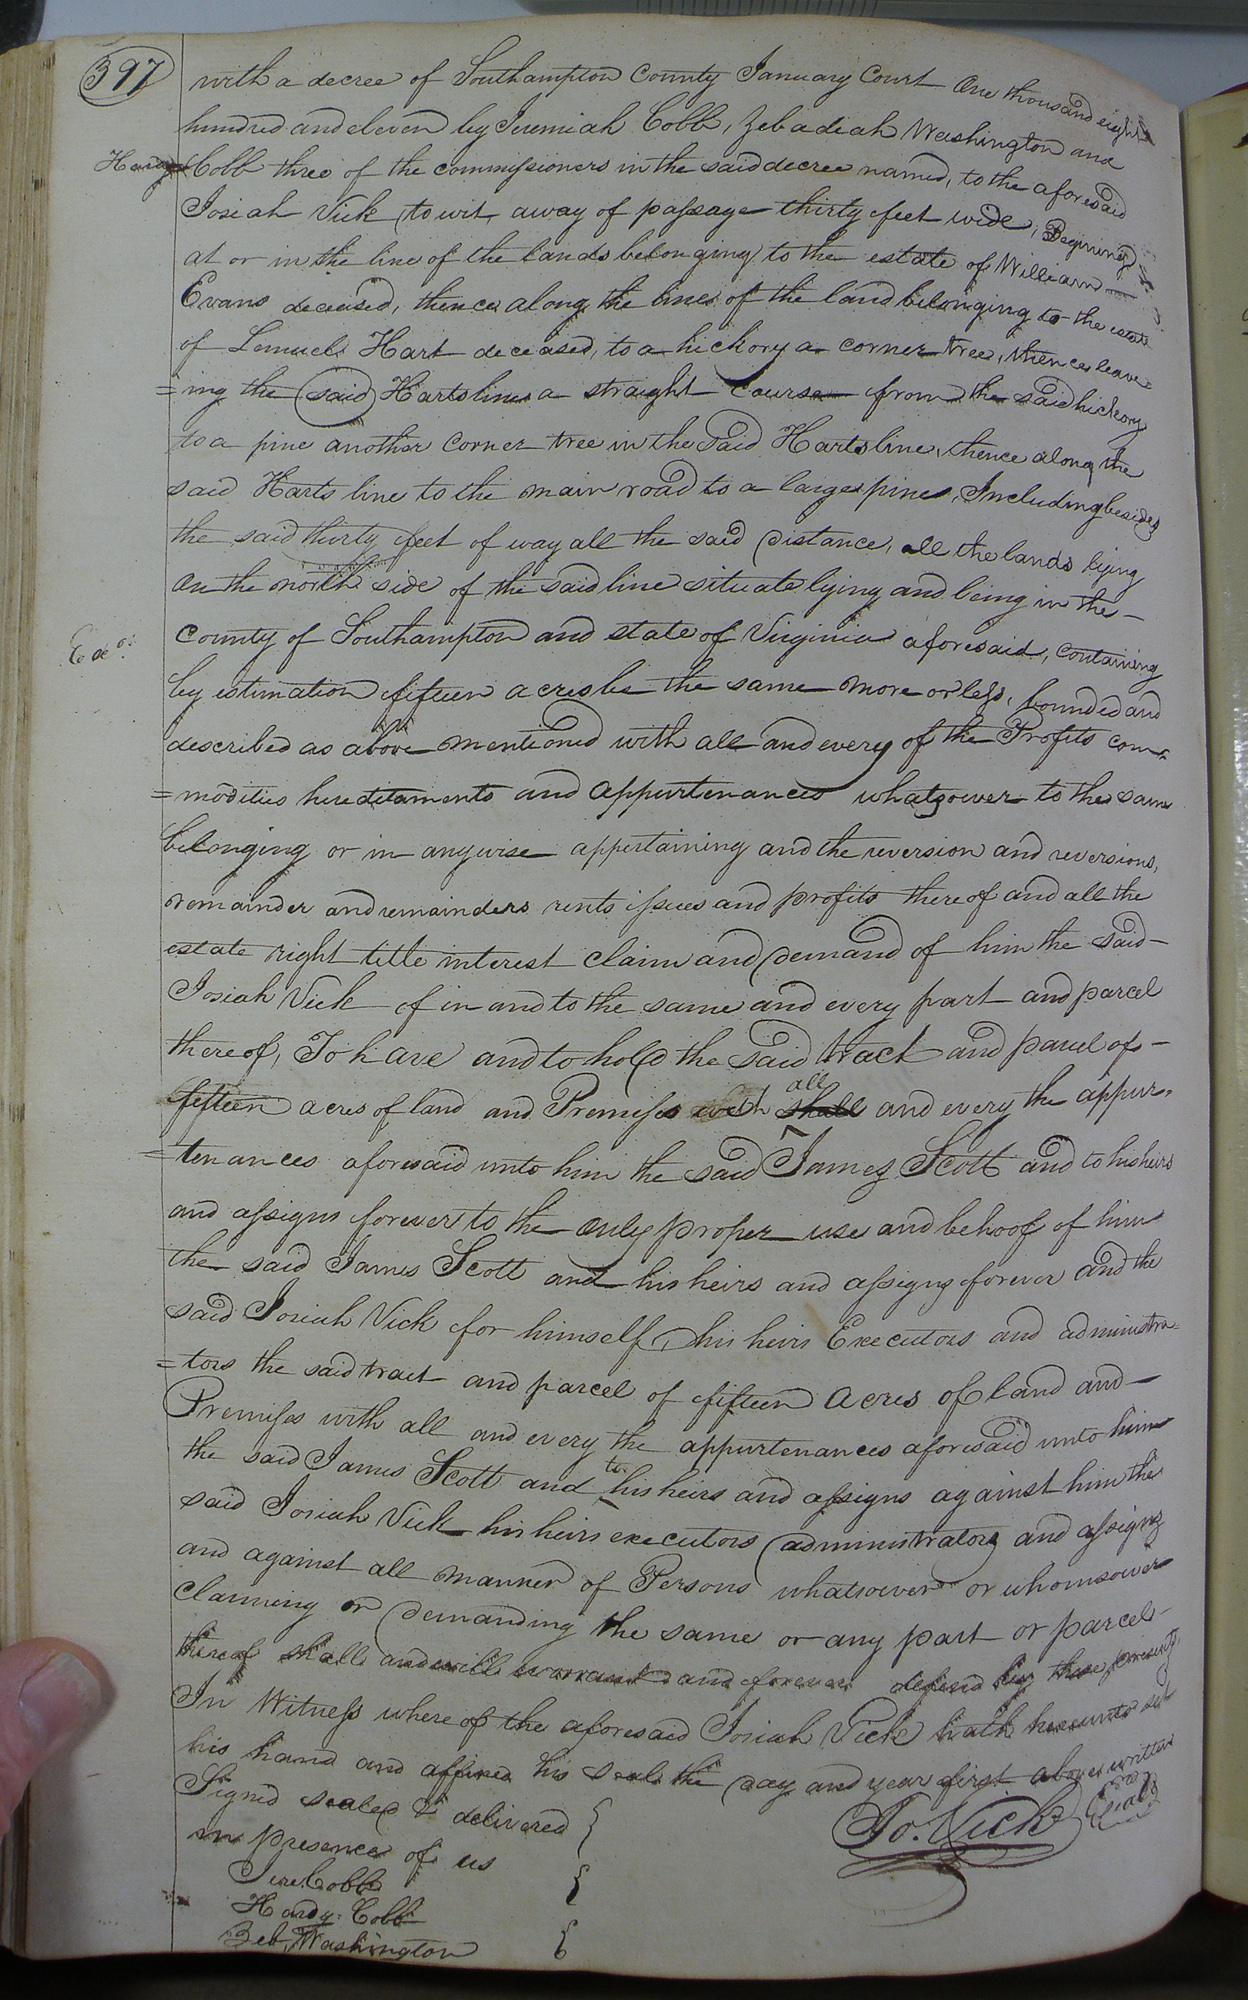 397
with a decree of Southampton County January Court One thousand eight
hundred and eleven by Jeremiah Cobb, Zebadiah Washington and
Hardy Cobb three of the commissioners in the said decree named, to the aforesaid
Josiah Vick (to wit, a way of passage thirty feet wide, Beginning
at or in the line of the lands belonging to the estate of William
Evans deceased, thence along the lines of the land belonging to the estate
of Lemuel Hart deceased, to a hickory a corner tree, thence leav
=ing the said Harts line a straight course from the said hickory
to a pine another corner tree in the said Harts line, thence along the
said Harts line to the main road to a large pine, Including besides
the said thirty feet of way all the said distance, all the lands lying
on the north side of the said line situate lying and being in the
County of Southampton and state of Virginia aforesaid, containing
by estimation fifteen acres be the same more or less, bounded and
described as above mentioned with all and every of the Profits com
=modities hereditaments and appurtenances whatsoever to the same
belonging or in anywise appertaining and the reversion and reversions,
remainder and remainders rents issues and profits thereof and all the
estate right title interest claim and demand of him the said
Josiah Vick of in and to the same and every part and parcel
thereof, To have and to hold the said tract and parcel of
all
fifteen acres of land and Premises with shall and every the appur
=tenances aforesaid unto him the said James Scott and to his heirs
and assigns forever to the only proper use and behoof of him
the said James Scott and his heirs and assigns forever and the
said Josiah Vick for himself, his heirs Executors and administra=
=tors the said tract and parcel of fifteen acres of land and
Premises with all and every the appurtenances aforesaid unto him
the said James Scott and to his heirs and assigns against him the
said Josiah Vick his heirs executors administrators and assigns
and against all manner of Persons whatsoever or whomsoever
claiming or demanding the same or any part or parcel
thereof shall and will warrant and forever defend by these presents,
In Witness whereof the aforesaid Josiah Vick hath hereunto set
his hand and affixed his seal the day and year first above written
Signed sealed & delivered
in presence of us
Jo. Vick Seal
Jere Cobb
Hardy Cobb
Zeb, Washington